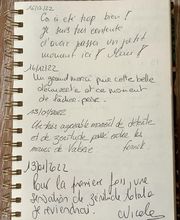 16/01/22
Ça a été trop bien !
Je suis très contente
d'avoir passé un petit
moment ici ! Merci !
16/01/2022
Un grand merci pour cette belle
découverte et ce moment
de lâcher-prise.
13/01/2022
Un très agréable moment de détente
et de
mains de Valérie
13/01/2022
Pour la première fois, une
sensation de zénitude totale
Je reviendrai.
Nicole